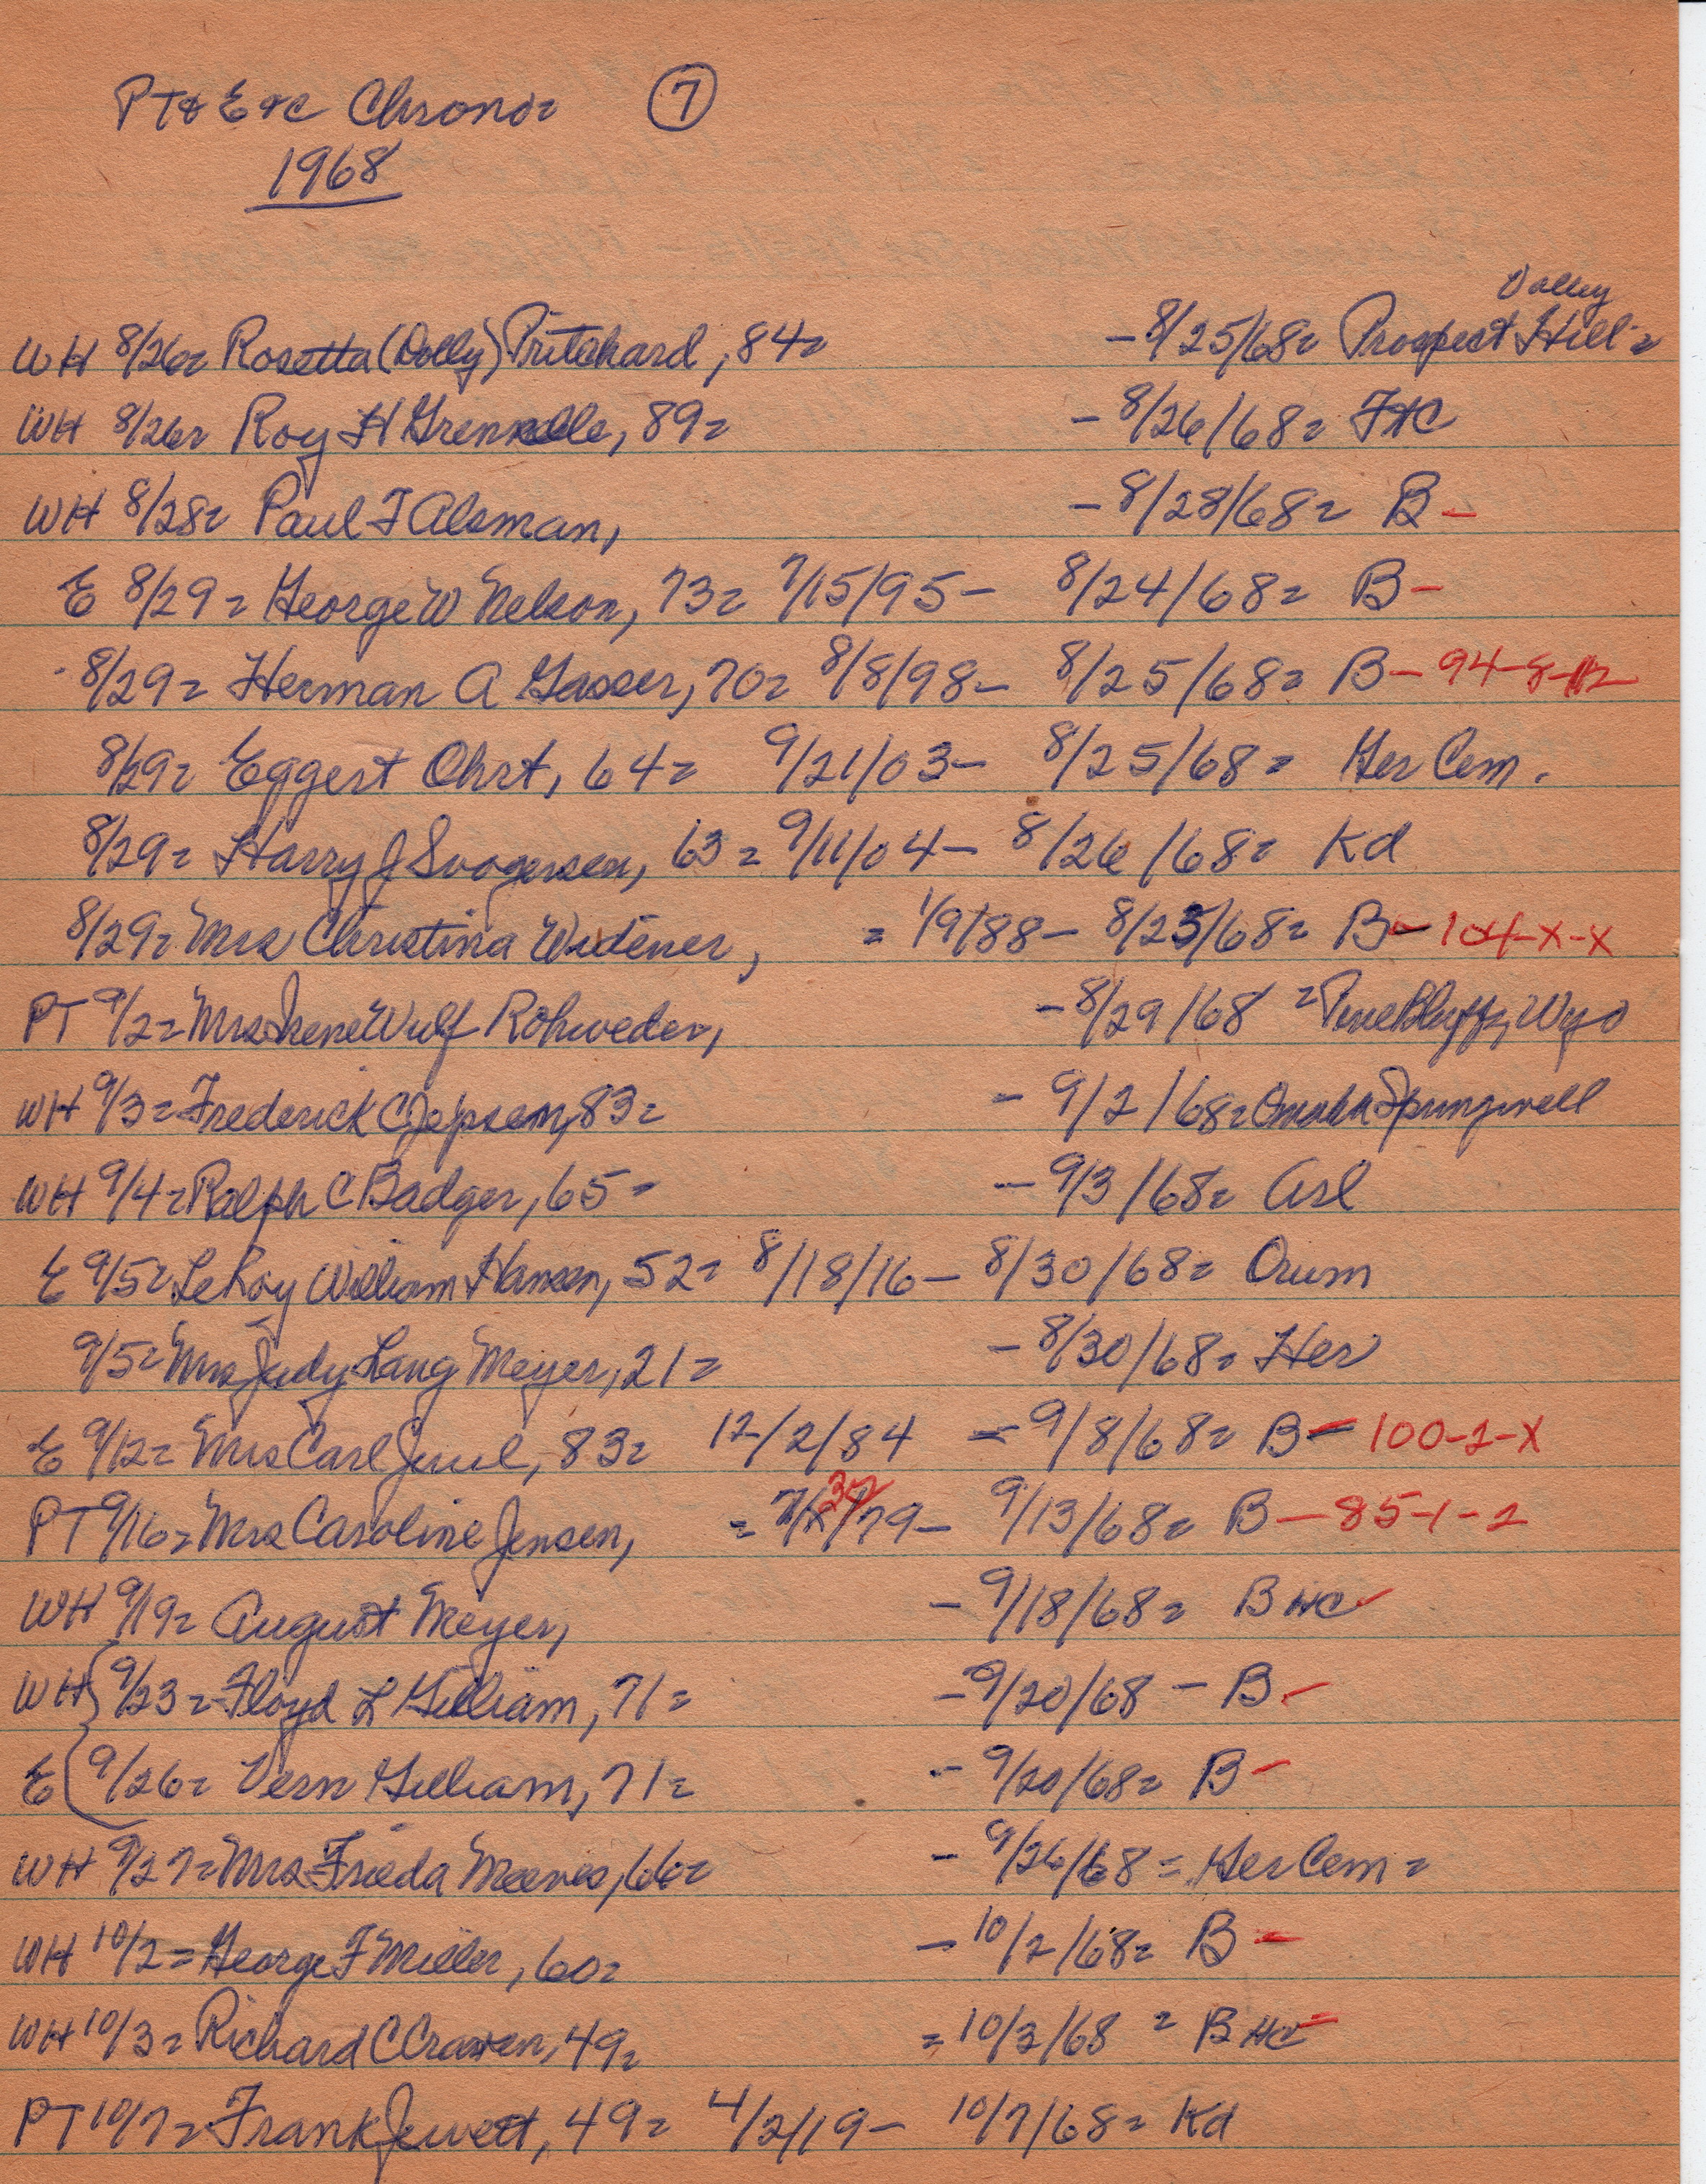 PT & E &c Chrono= 7
1968
Valley
WH 8/26= Rosetta (Dolly) Pritchard, 84= - 8/25/68= Prospect Hill=
WH 8/26= Roy H Grennelle, 89= - 8/26/68= FHC
WH 8/28= Paul F Alsman, - 8/28/68= B-
E 8/29= George W Nelson, 73= 7/15/95- 8/24/68= B-
8/29= Herman A Gasser, 70= 8/8/98- 8/25/68= B- 94-8-
8/29= Eggert Ohrt, 64= 9/21/03- 8/25/68= Her Cem.
8/29= Harry J Svogersen, 63= 9/11/04- 8/26/68= Kd
8/29= Mrs Christina Widener, = 1/9/88- 8/23/68= B- 104-x-x
PT 9/2= Mrs Irene Wulf Rohweder, - 8/29/68= Pine Bluffs, Wyo
WH 9/3= Frederick C Jepsen, 83= - 9/2/68= Omaha Springwell
WH 9/4= Ralph C Badger, 65= - 9/3/68= Arl
E 9/5= LeRoy William Hansen, 52= 8/18/16- 8/30/68= Orum
9/5= Mrs Judy Lang Meyer, 21= - 8/30/68= Her
E 9/12= Mrs Carl Juul, 83= 12/2/84 - 9/8/68= B- 100-2-x
37
PT 9/16= Mrs Caroline Jensen, = 7/x/79- 9/13/68= B- 85-1-2
WH 9/19= August Meyer, - 9/18/68= B HC-
WH 9/23= Floyd L Gilliam, 71= - 9/20/68 - B-
E 9/26= Vern Gilliam, 71= - 9/20/68= B-
WH 9/27= Mrs Frieda Meeves, 66= - 9/26/68= Her Cem=
WH 10/2= George F Miller, 60= - 10/2/68= B-
WH 10/3= Richard C Craven, 49= = 10/3/68= B HC-
PT 10/7= Frank Jewett, 49= 4/2/19- 10/7/68= Kd